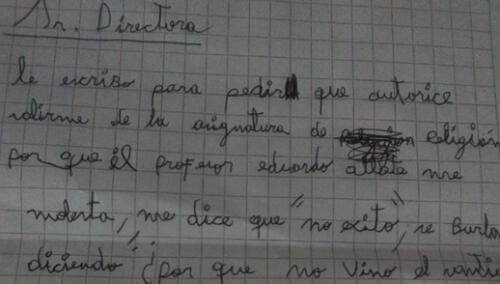 Sr. Directora
le escribo para pedir que autorice
salirme de la asignatura de religión
por que él profesor eduardo me
molesta, me dice que "no exito", se burla
diciendo "¿por que no vino el